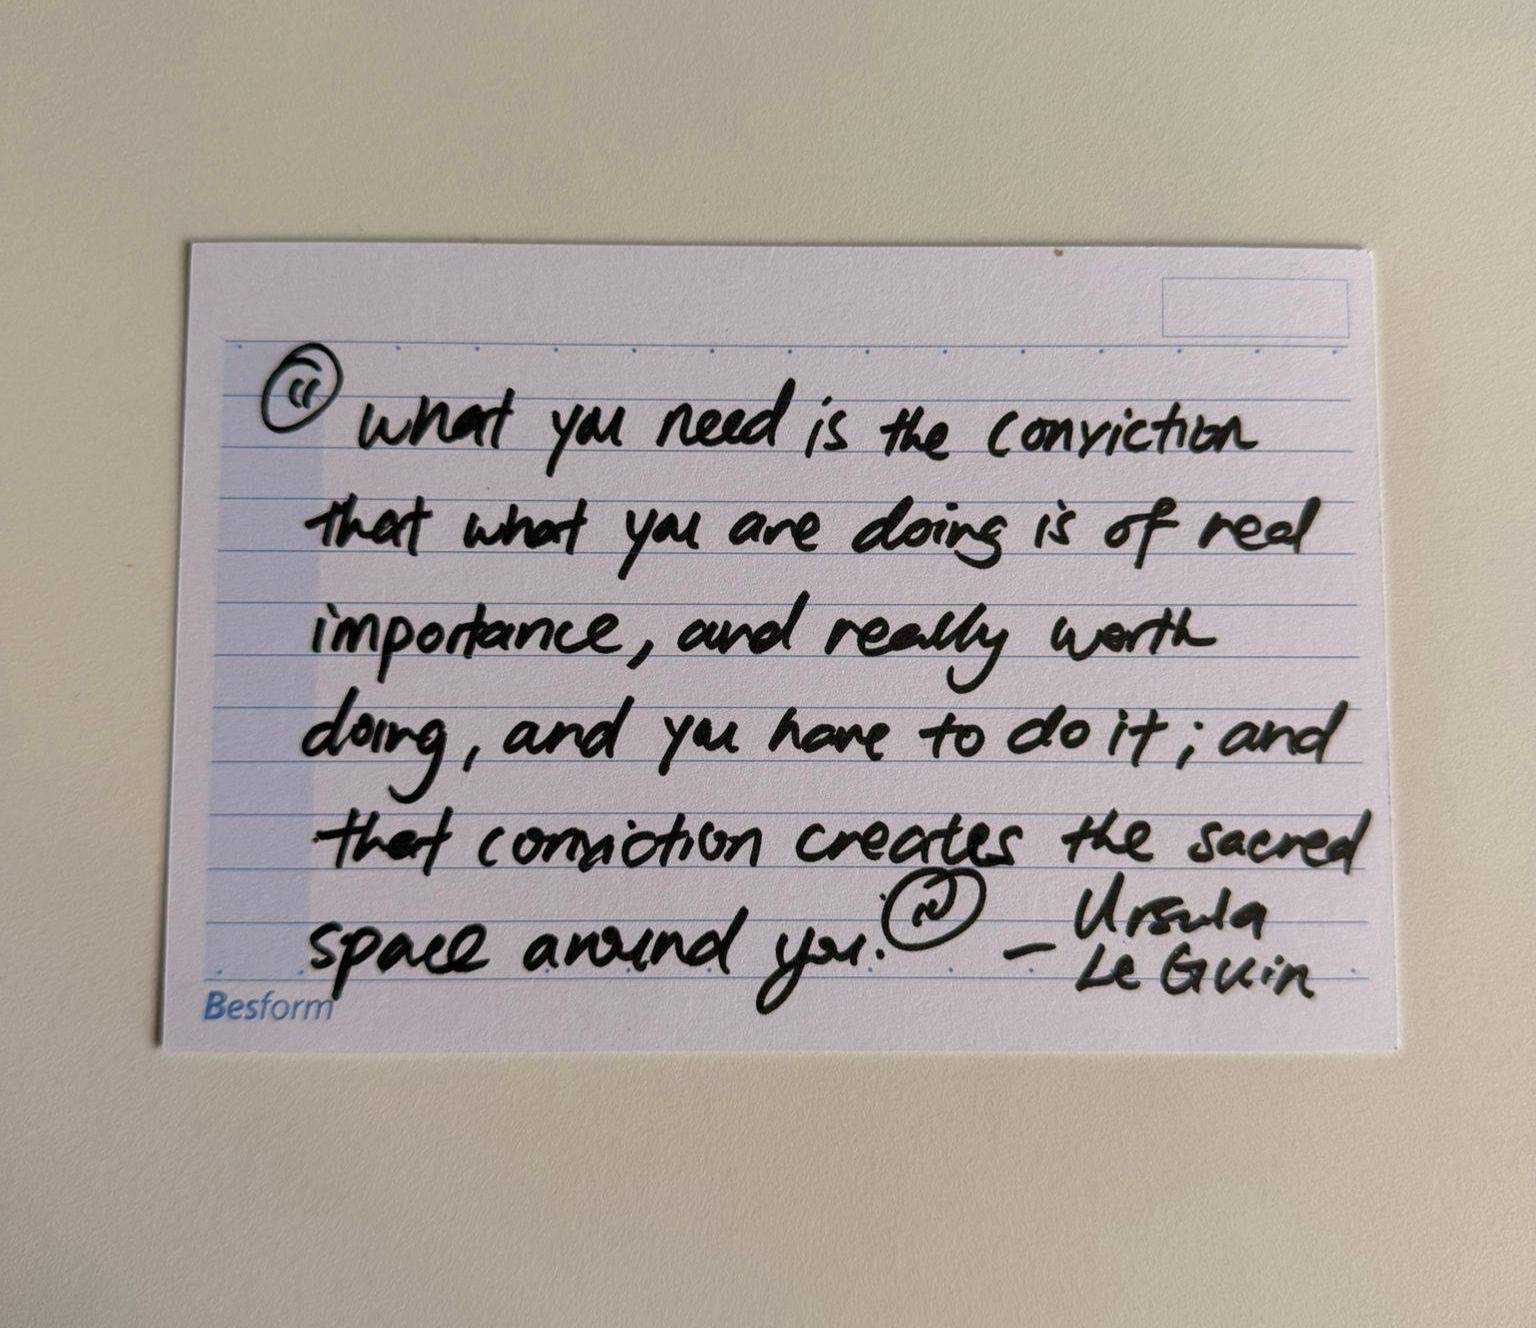 “ what you need is the conviction
that what you are doing is of real
importance, and really worth
doing, and you have to do it; and
that conviction creates the sacred
space around you. ” – Ursula
Le Guin
Besform